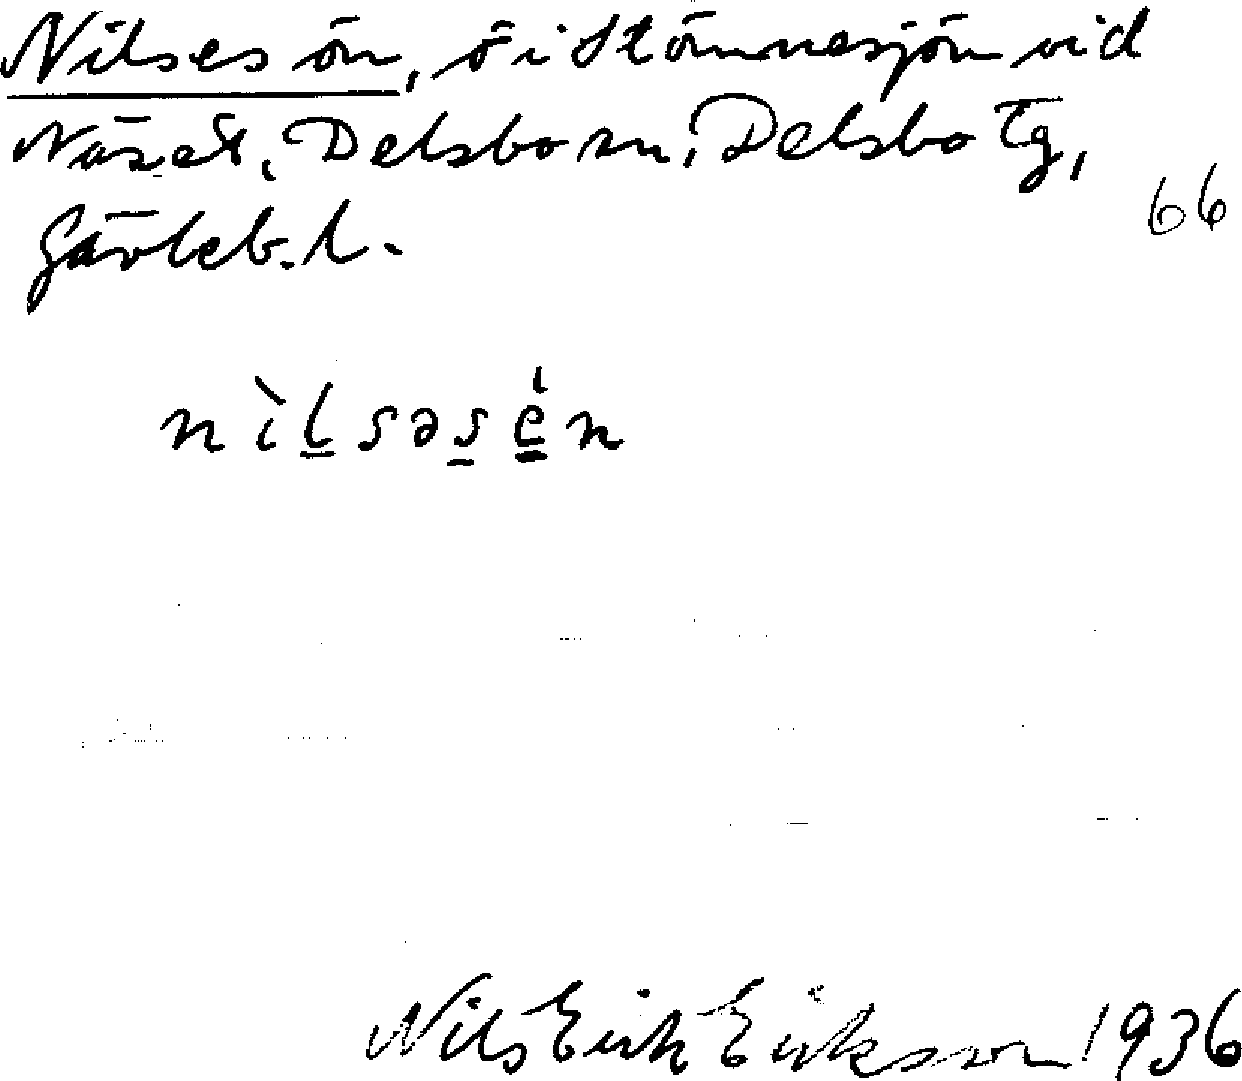 Nilses ön, ö i Stömnesjön vid
Näset, Delsbo sn, Delsbo tg,
Gävleb. l.
66
nìlsəsén
Nils Erik Eriksson 1936